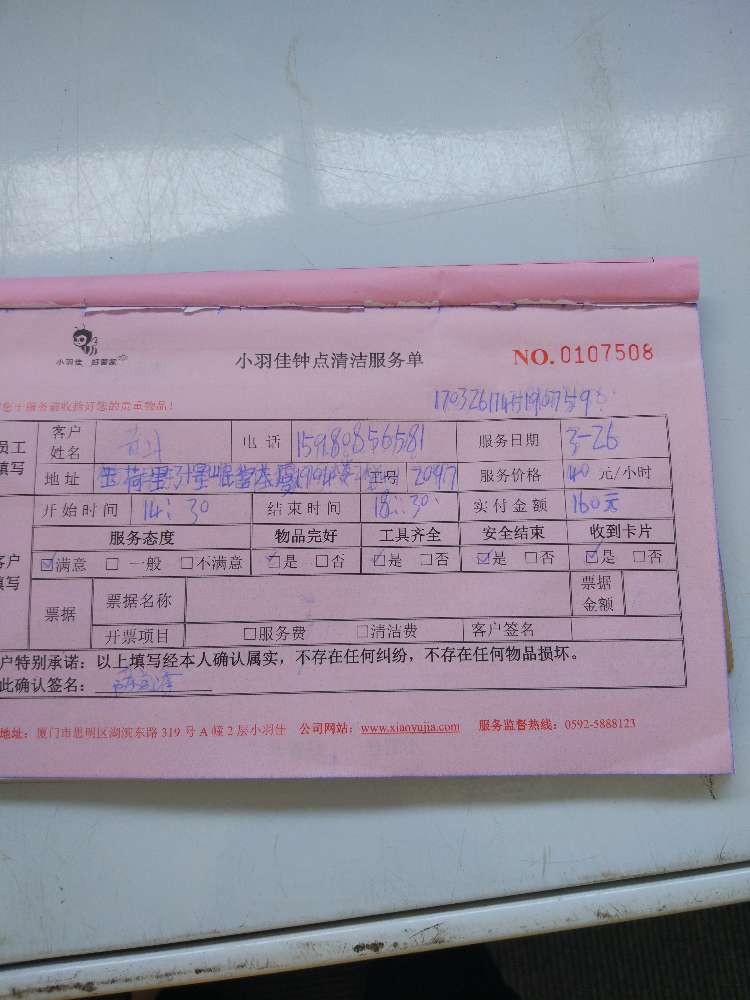 小羽佳 好管家
小羽佳钟点清洁服务单
NO. 0107508
您于服务前收拾好您的贵重物品!
员工填写
客户姓名
电话 15980856581 服务日期 3-26
地址 工号 2097 服务价格 40 元/小时
开始时间 14:30 结束时间 18:30 实付金额 160元
服务态度 物品完好 工具齐全 安全结束 收到卡片
客户填写
☑满意 □一般 □不满意 ☑是 □否 ☑是 □否 ☑是 □否 ☑是 □否
票据 票据名称 票据金额
开票项目 □服务费 □清洁费 客户签名
户特别承诺:以上填写经本人确认属实,不存在任何纠纷,不存在任何物品损坏。
此确认签名:
地址:厦门市思明区湖滨东路 319 号 A 幢 2 层小羽佳 公司网站:www.xiaoyujia.com 服务监督热线:0592-5888123